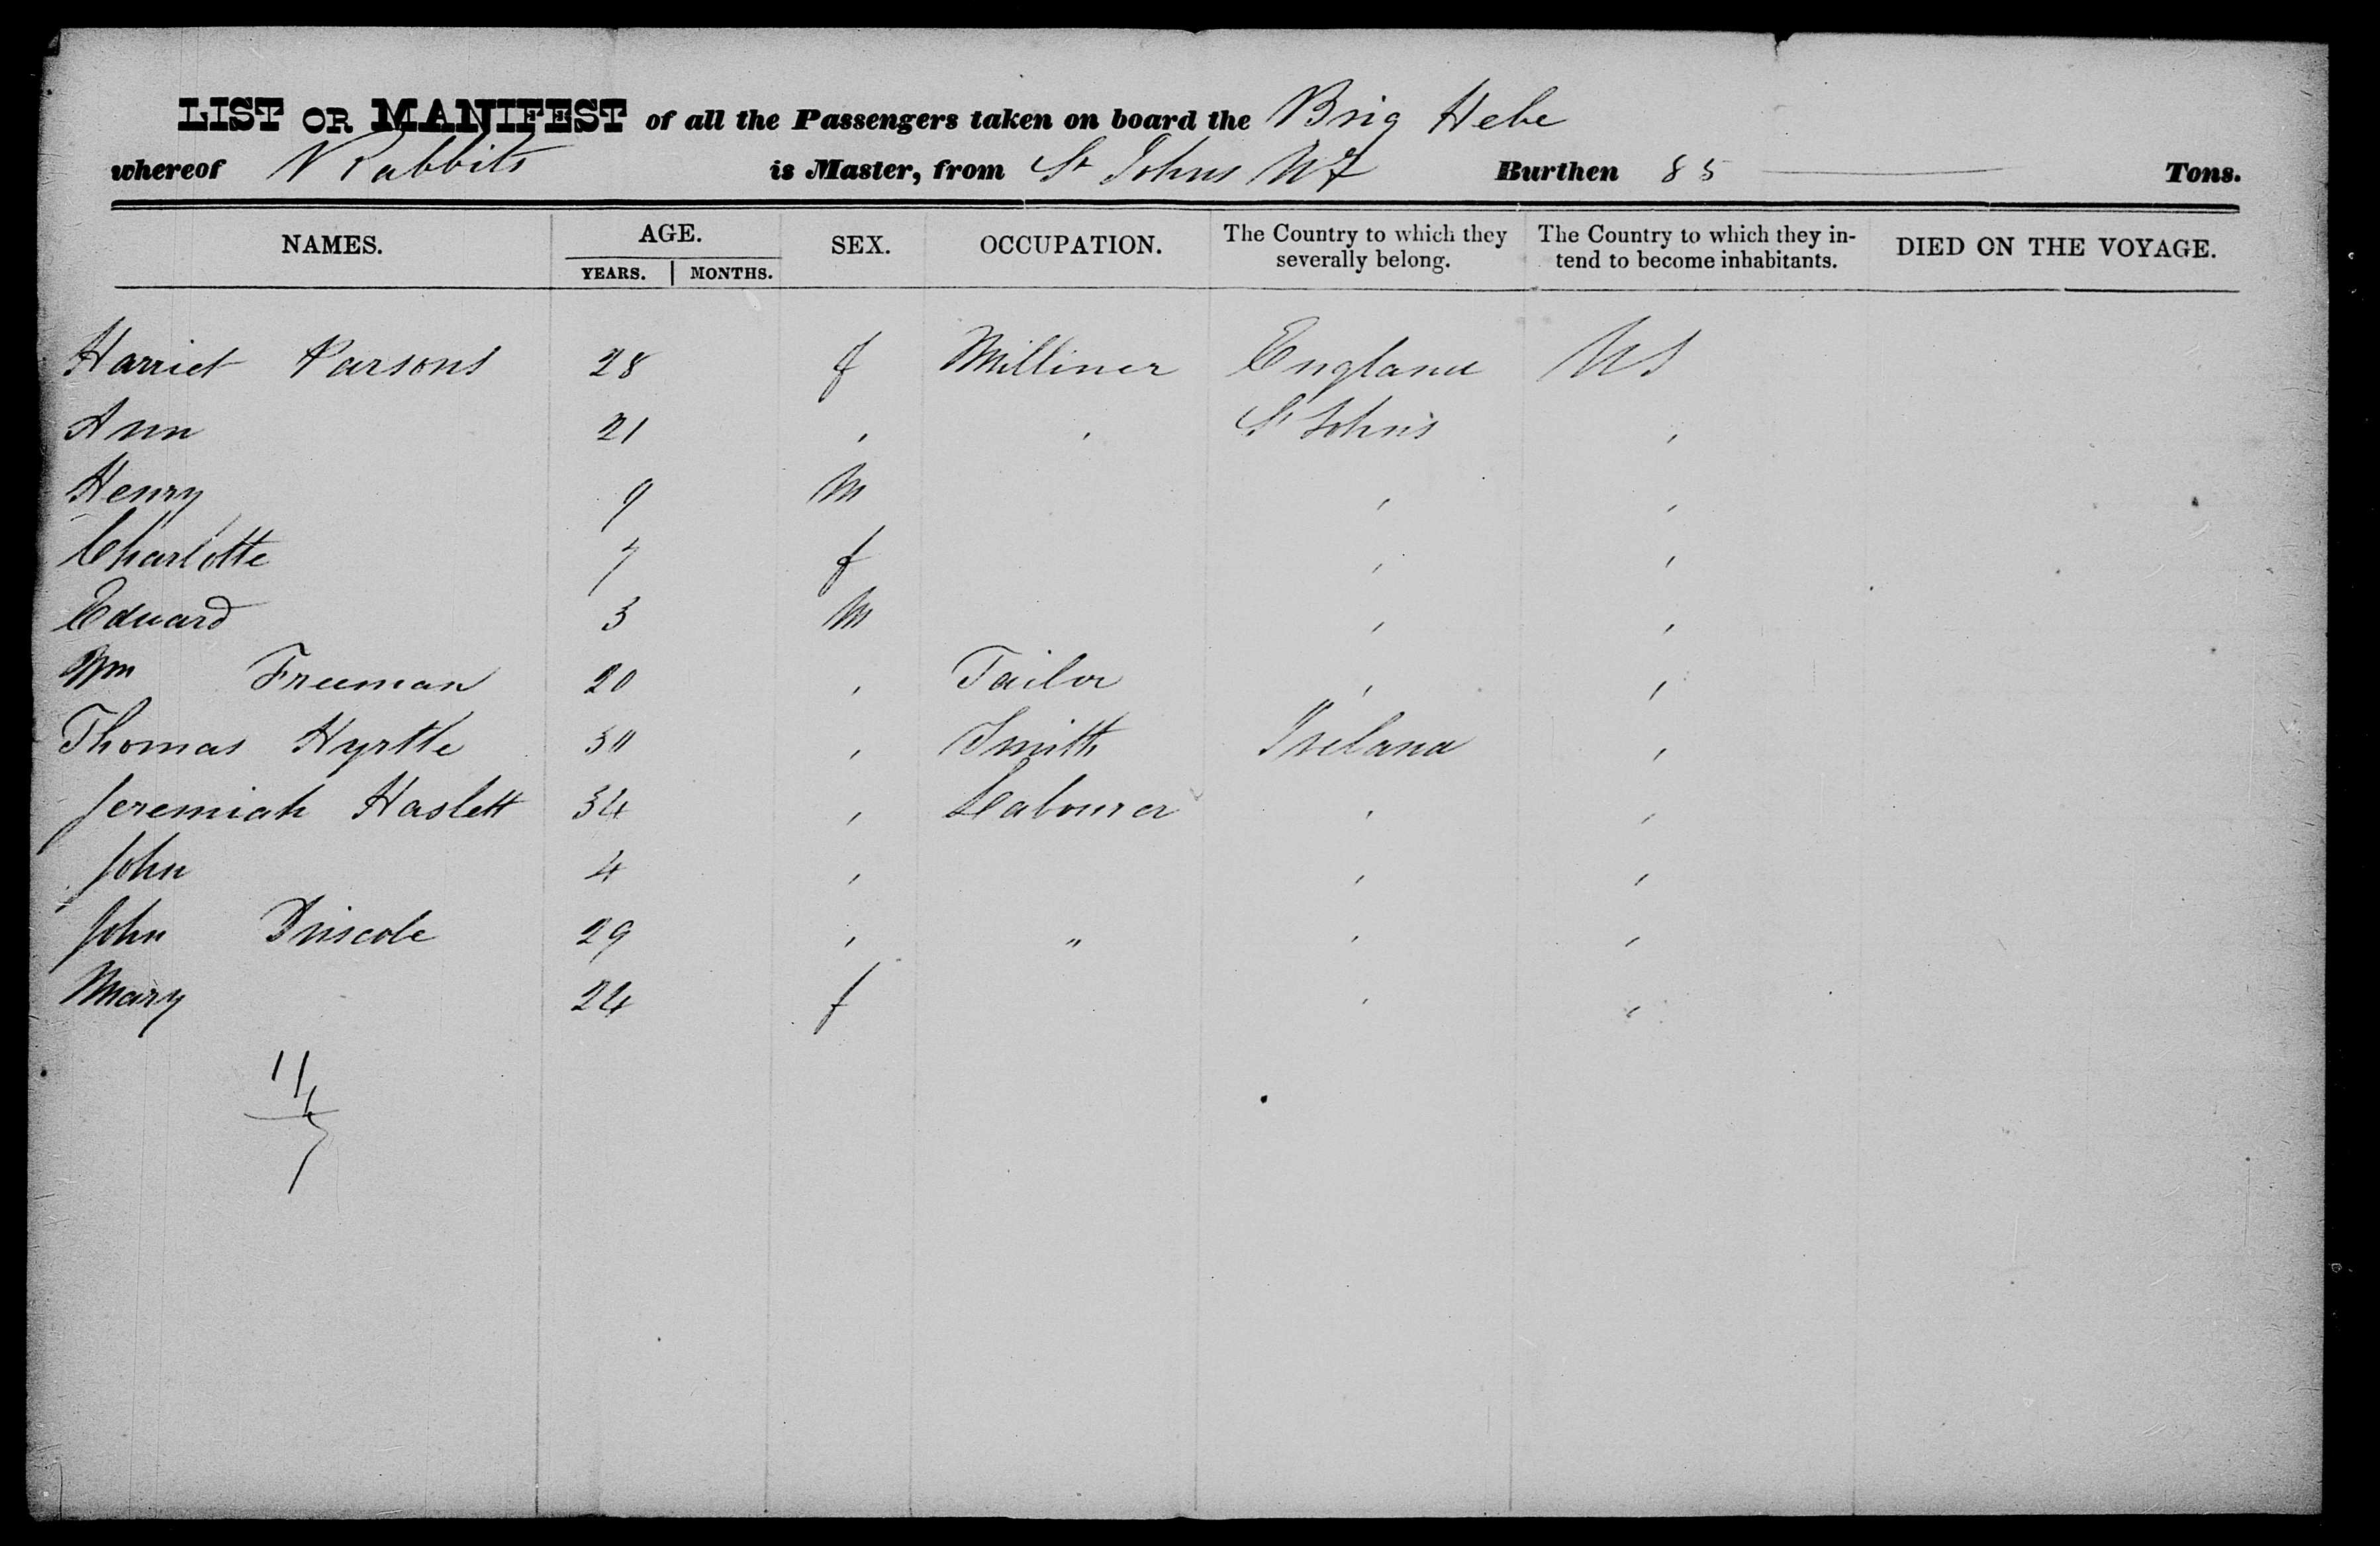 LIST OR MANIFEST of all the Passengers taken on board the Brig Hebe
whereof N Rabbits is Master, from St Johns NF Burthen 85 Tons.
NAMES. AGE. YEARS. MONTHS. SEX. OCCUPATION. The Country to which they severally belong. The Country to which they intend to become inhabitants. DIED ON THE VOYAGE.
Harriet Parsons 28 f Milliner England US
Ann 21 , , St Johns ,
Henry 9 M , ,
Charlotte 7 f , ,
Edward 3 M , ,
Wm Freeman 20 , Tailor , ,
Thomas Hyrtle 30 , Smith Ireland ,
Jeremiah Haslett 34 , Labourer , ,
John 4 , , ,
John Driscole 29 , " , ,
Mary 24 f , ,
11